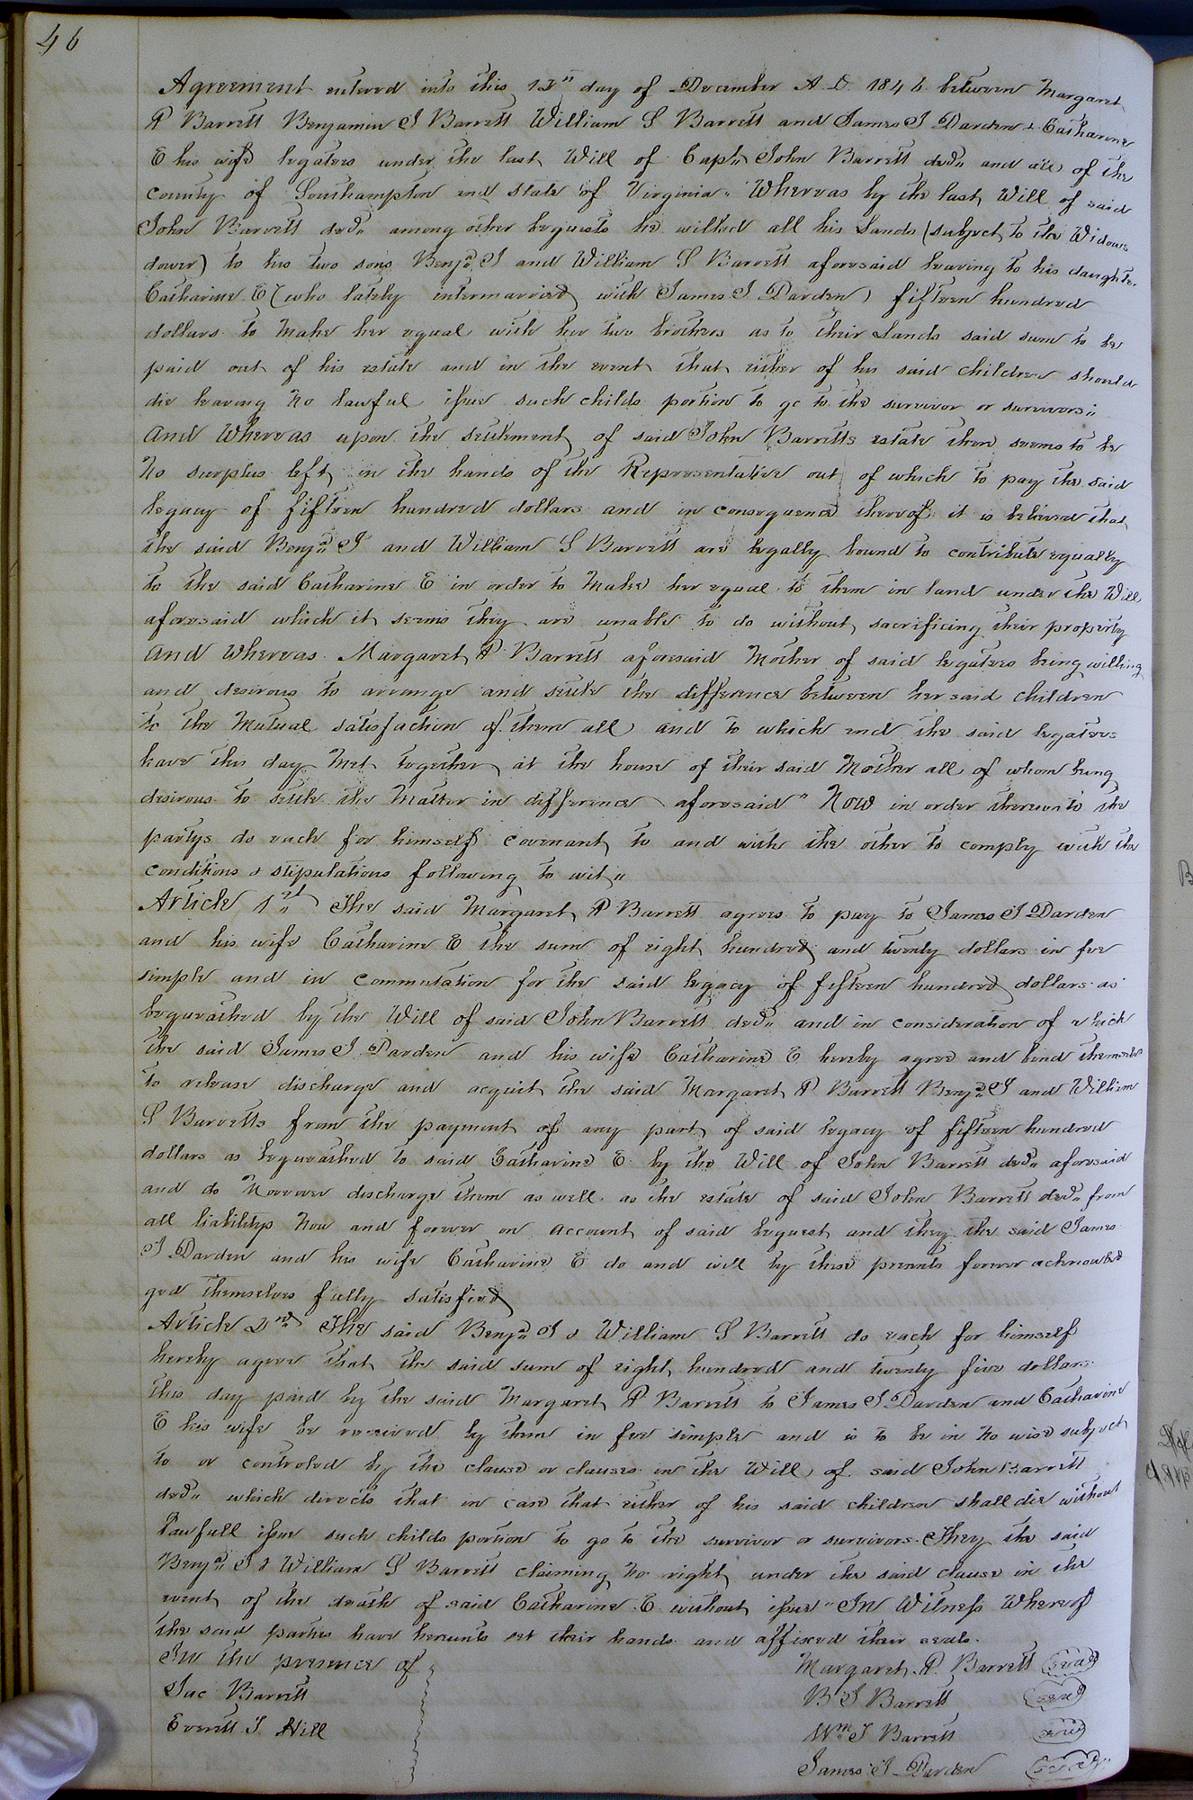 46
Agreement entered into this 12" day of December A. D. 1846 between Margaret
P Barrett Benjamin J Barrett William S Barrett and James J Darden & Catharine
E his wife legatees under the last Will of Capt" John Barrett decd" and all of the
county of Southampton and state of Virginia" Whereas by the last Will of said
John Barrett decd" among other bequests he willed all his Lands (subject to the Widows
dower) to his two sons Benjn J and William S Barrett aforesaid leaving to his daughter
Catharine E (who lately intermarried with James J Darden) fifteen hundred
dollars to make her equal with her two brothers as to their Lands said sum to be
paid out of his estate and in the event that either of his said children should
die leaving no lawful issue such childs portion to go to the survivor or survivors"
And Whereas upon the settlement of said John Barretts estate there seems to be
no surplus left in the hands of the Representative out of which to pay the said
legacy of fifteen hundred dollars and in consequence thereof it is believed that
the said Benjn J and William S Barrett are legally bound to contribute equally
to the said Catharine E in order to make her equal to them in land under the Will
aforesaid which it seems they are unable to do without sacrificing their property
And Whereas Margaret P Barrett aforesaid Mother of said legatees being willing
and desirous to arrange and settle the difference between her said children
to the mutual satisfaction of them all and to which end the said legatees
have this day met together at the house of their said Mother all of whom being
desirous to settle the matter in difference aforesaid" Now in order thereunto the
partys do each for himself covenant to and with the other to comply with the
conditions & stipulations following to wit"
Article 1st" The said Margaret P Barrett agrees to pay to James J Darden
and his wife Catharine E the sum of eight hundred and twenty dollars in fee
simple and in commutation for the said legacy of fifteen hundred dollars as
bequeathed by the Will of said John Barrett decd" and in consideration of which
the said James J Darden and his wife Catharine E hereby agree and bind themselves
to release discharge and acquit the said Margaret P Barrett Benjn J and William
S Barretts from the payment of any part of said legacy of fifteen hundred
dollars as bequeathed to said Catharine E by the Will of John Barrett decd" aforesaid
and do moreover discharge them as well as the estate of said John Barrett decd" from
all liabilitys now and forever on account of said bequest and they the said James
J Darden and his wife Catharine E do and will by these presents forever acknowled
ged themselves fully satisfied
Article 2nd The said Benjn J & William S Barrett do each for himself
hereby agree that the said sum of eight hundred and twenty five dollars
this day paid by the said Margaret P Barrett to James J Darden and Catharine
E his wife be received by them in fee simple and is to be in no wise subject
to or controled by the clause or clauses in the Will of said John Barrett
decd" which directs that in case that either of his said children shall die without
lawfull issue such childs portion to go to the survivor or survivors. They the said
Benjn J & William S Barrett claiming no right under the said clause in the
event of the death of said Catharine E without issue" In Witness Whereof
the said parties have hereunto set their hands and affixed their seals.
In the presence of
Margaret P. Barrett seal
Jac Barrett
B J Barrett seal
Everett J Hill
Wm S Barrett seal
James J Darden seal